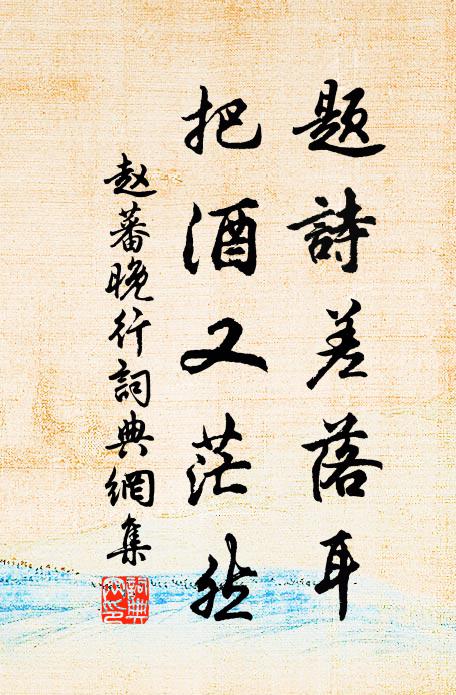 題詩差落耳
把酒又茫然
赵蕃晚行詞典網集